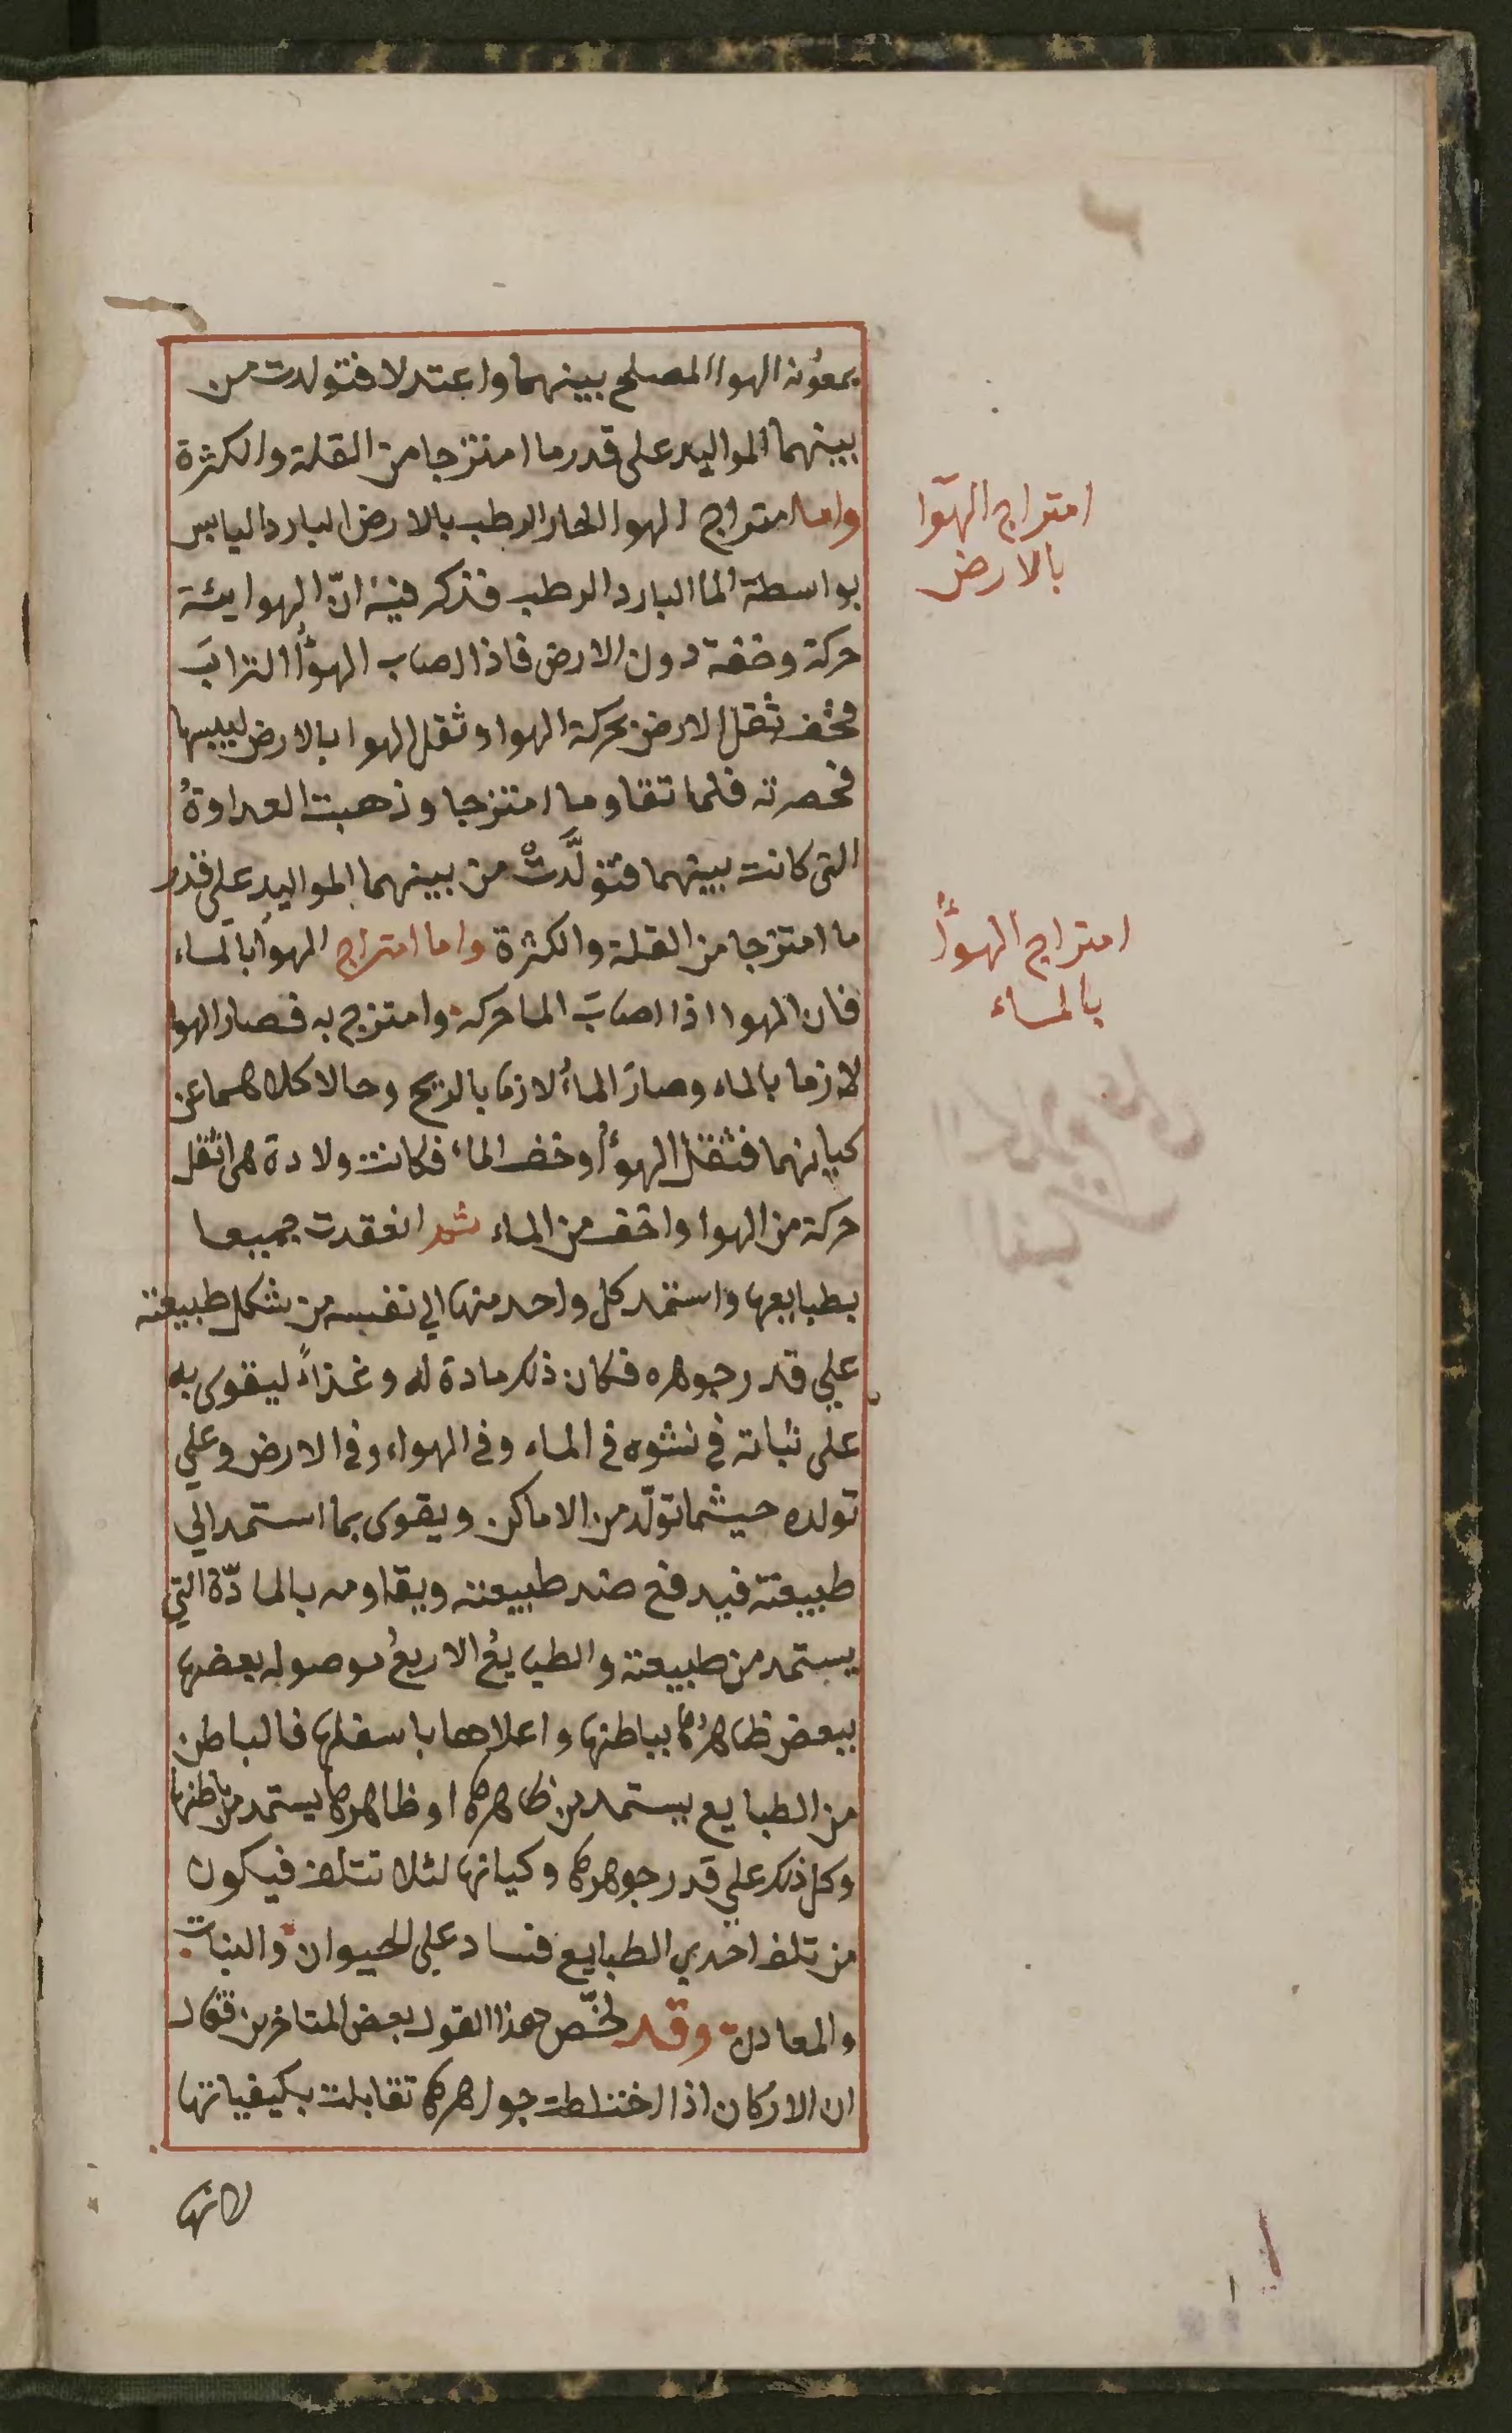 بمعونة الهوا المصلح بينهما واعتدلا فتولدت من
بينهما المواليد على قدر ما امتزجا من القلة والكثرة
واما امتزاج الهوا الحار الرطب بالارض البارد اليابس
بواسطة الما البارد الرطب فنذكر فيه انّ الهوا يئة
حركة وخفة دون الارض فاذا اصاب الهوأ الترابَ
فخف ثقل الارض بحركة الهوا وثقل الهوا بالارض ليبسها
فحصرته فلما تقاوما امتزجا وذهبت العداوةُ
التى كانت بينهما فتولَّدتْ من بينهما المواليد على قدر
ما امتزجا من القلة والكثرة واما امتزاج الهوأ بالماء
فان الهوا اذا اصابَ الما حركه وامتزج به فصار الهوا
لازما بالماء وصار الماءُ لازما بالريح وحالا كلاهما عن
كيانهما فثقل الهوأ وخف الماء فكانت ولادة هى اثقل
حركة من الهوا واخف من الماء ثم انعقدت جميعا
بطبايعها واستمد كل واحد منها الي نفسه من شكل طبيعته
علي قدر جوهره فكان ذلك مادة له وغذاءً ليقوى به
على نباته في نشوه في الماء وفي الهواء وفي الارض وعلي
تولده حيثما تولّد من الاماكن ويقوى بما استمد الي
طبيعته فيدفع ضد طبيعته ويقاومه بالمادّة التي
يستمد من طبيعته والطبايعُ الاربعُ موصوله بعضها
ببعض ظاهرُها بباطنها واعلاها باسفلها فالباطن
من الطبايع يستمد من ظاهرها وظاهرها يستمد من باطنها
وكل ذلك علي قدر جوهرها وكيانها لئلا تتلف فيكون
من تلف احدي الطبايع فساد على الحيوان والنبات
والمعادن وقد لخّص هذا القول بعض المتاخرين فقال
ان الاركان اذا اختلطت جواهرها تقابلت بكيفياتها
لانها
امتزاج الهوا
بالارض
امتزاج الهوأ
بالماء